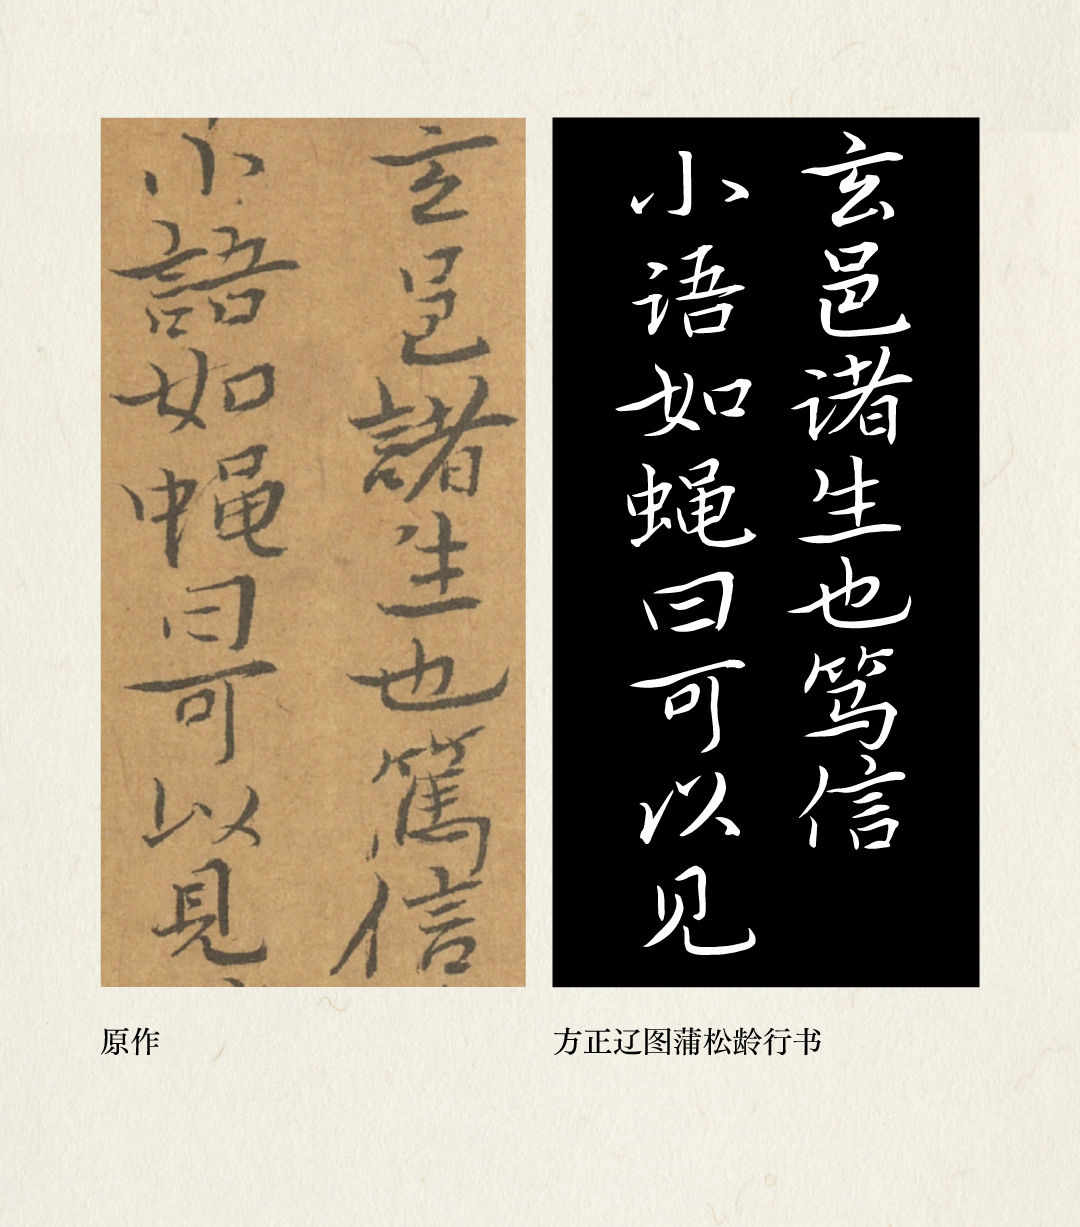 玄邑諸生也篤信
小語如蝇曰可以見
玄邑诸生也笃信
小语如蝇曰可以见
原作
方正辽图蒲松龄行书